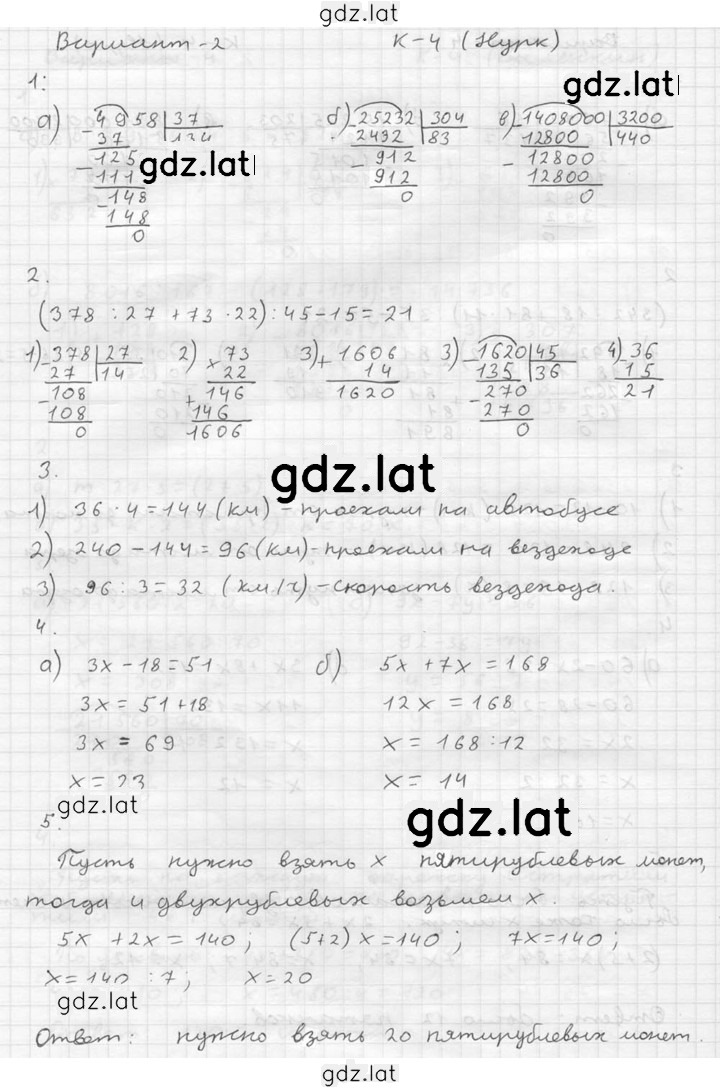 gdz.lat
Вариант-2 К-4 (Нурк)
gdz.lat
1:
а) 4958 | 37 б) 25232 | 304 в) 1408000 | 3200
37 134 2432 83 12800 440
125 912 12800
111 912 12800
148 0 0
148
0
gdz.lat
2.
(378 : 27 + 73 · 22) : 45 - 15 = 21
1) 378 | 27 2) 73 3) 1606 3) 1620 | 45 4) 36
27 14 × 22 + 14 135 36 - 15
108 + 146 1620 270 21
108 146 270
0 1606 0
gdz.lat
3.
1) 36 · 4 = 144 (км) - проехали на автобусе
2) 240 - 144 = 96 (км) - проехали на вездеходе
3) 96 : 3 = 32 (км/ч) - скорость вездехода.
4.
а) 3x - 18 = 51 б) 5x + 7x = 168
3x = 51 + 18 12x = 168
3x = 69 x = 168 : 12
x = 23 x = 14
gdz.lat gdz.lat
5.
Пусть нужно взять x пятирублевых монет,
тогда и двухрублевых возьмем x.
5x + 2x = 140; (5+2)x = 140; 7x = 140;
x = 140 : 7; x = 20
gdz.lat
Ответ: нужно взять 20 пятирублевых монет.
gdz.lat